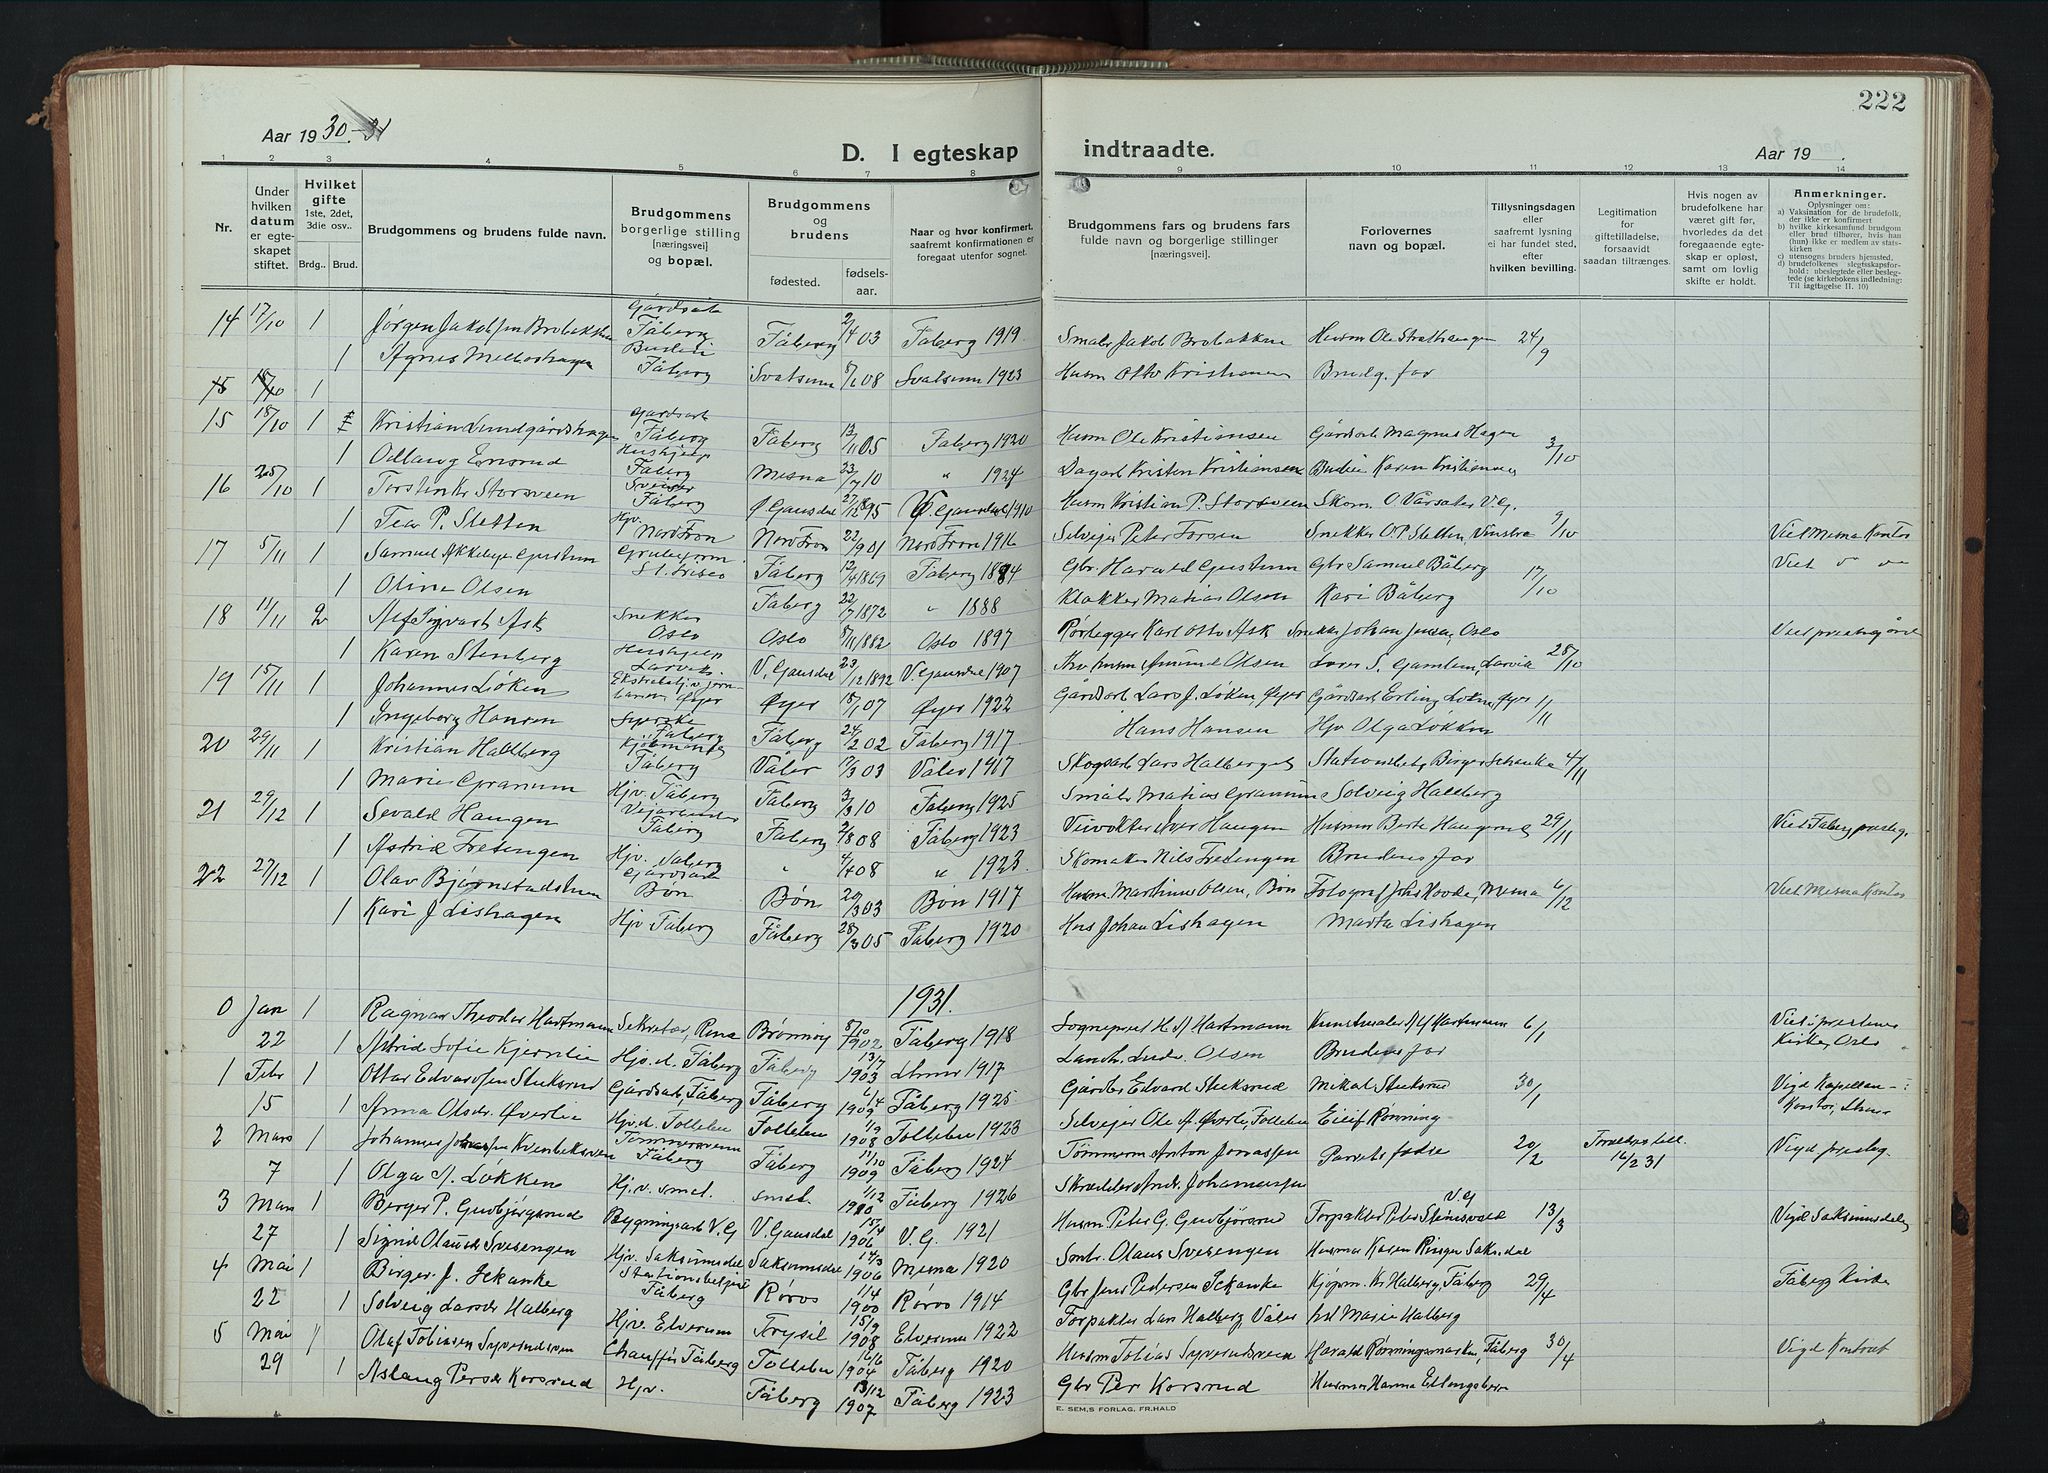 222
Aar 1930-31
D. I egteskap indtraadte.
Aar 19 .
1 2 3 4 5 6 7 8 9 10 11 12 13 14
Nr.
Under hvilken datum er egteskapet stiftet.
Hvilket gifte 1ste, 2det, 3die osv..
Brdg.. Brud.
Brudgommens og brudens fulde navn.
Brudgommens borgerlige stilling [næringsvei] og bopæl.
Brudgommens og brudens
fødested. fødselsaar.
Naar og hvor konfirmert, saafremt konfirmationen er foregaat utenfor sognet.
Brudgommens fars og brudens fars fulde navn og borgerlige stillinger [næringsvei].
Forlovernes navn og bopæl.
Tillysningsdagen eller saafremt lysning ei har fundet sted, efter hvilken bevilling.
Legitimation for giftetilladelse, forsaavidt saadan tiltrænges.
Hvis nogen av brudefolkene har været gift før, hvorledes da det foregaaende egteskap er opløst, samt om lovlig skifte er holdt.
Anmerkninger.
Oplysninger om:
a) Vaksination for de brudefolk, der ikke er konfirmert
b) hvilke kirkesamfund brudgom eller brud tilhører, hvis han (hun) ikke er medlem av statskirken
c) utensogns bruders hjemsted.
d) brudefolkenes slegtsskapsforhold: ubeslegtede eller beslegtede (se kirkebokens indledning: Til iagttagelse II. 10)
14 17/10 1 Jørgen Jakobsen Brobakken Fåberg Fåberg 2/4 03 Faaberg 1919 Jakob Brobakken Husm 24/9
1 Agnes Fåberg Svatsum 08 Svatsum 1923 Husm Otto Kristiansen Brudg. far
15 18/10 1
15 18/10 1 Kristian Fåberg Fåberg 05 Faberg 1920 Husm Ole Kristiansen Gårdsarb Magnus Hagen 3/10
1 Odlaug Ensrud Fåberg Mesna 23/7 10 " 1924 Dagarb Kristen Kristiansen Karen Kristiansen
16 25/10 1 Storsveen Sveiser Fåberg Ø. Gausdal 27/12 95 Ø. Gausdal 1910 Husm Kristian P. Storsveen Skom. O. V.G.
1 Tea P. Sletten Hjv. Nord Fron Nord Fron 22/9 01 Nord Fron 1916 Selveier Peter Snekker O. P. Sletten, Vinstra 9/10 Viet Mesna Kontor
17 5/11 1 Samuel Fåberg 12/4 1869 Fåberg 1884 Gbr. Harald Gbr Samuel Båberg 17/10 Viet
1 Oline Olsen Faberg 22/7 1872 " 1888 Matias Olsen Kari Båberg
18 11/11 2 Alf Sigvart Ask Snekker Oslo Oslo 8/11 1882 Oslo 1897 Rørlegger Karl Otto Ask Snekker Johan Jensen, Oslo
1 Karen Stenberg Larvik V. Gausdal 23/12 1892 V. Gausdal 1907 Olsen Larvik 28/10
19 15/11 1 Johannes Løken Øyer Øyer 18/1 07 Øyer 1922 Gårdsarb Lars J. Løken, Øyer Gårdsarb Erling Løken, Øyer 1/11
1 Ingeborg Hansen Syerske Fåberg Fåberg 24/2 02 Fåberg 1917 Hans Hansen Hjv Olga Løkken
20 29/11 1 Kristian Hallberg Kjøbmand Fåberg Våler 03 Våler 1917 Skogsarb Lars Halberget Stationsbetj Birger Schanke 4/11
1 Marie Granum Hjv. Fåberg Faberg 3/3 10 Fåberg 1925 Matias Granum Solveig Halberg
21 29/12 1 Sevald Haugen Veiarbeider Fåberg Fåberg 2/8 08 Fåberg 1923 Veivokter Iver Haugen Husm Berte Haugen 29/11 Viet Faberg presteg.
1 Astrid Tretengen Hjv. Faberg " 4/4 08 " 1923 Skomaker Nils Tretengen Brudens far
22 27/12 1 Olav Bjørnstadstuen Gårdsarb Bøn Bøn 20/3 03 Bøn 1917 Husm Martinus Olsen, Bøn Fotograf Johs Hovde, Mesna 6/12 Viet Mesna Kontor
1 Kari J. Lishagen Hjv Faberg Fåberg 28/3 05 Fåberg 1920 Hus Johan Lishagen Marta Lishagen
1931.
0 Jan 1 Ragnar Theodor Hartmann Sekretær, Rena Brønnøy 8/10 1902 Fåberg 1918 Sogneprest Hartmann Kunstmaler Hartmann 6/1 Viet i prestenes
22 1 Astrid Sofie Kjernlie Hjv. d. Fåberg Fåberg 13/7 1903 Lhmr 1917 Landh. Olsen Brudens far Kirke, Oslo
1 Febr 1 Ottar Edvardsen Steksrud Gårdsarb, Fåberg Fåberg 6/4 1909 Fåberg 1925 Gårdbr Edvard Steksrud Mikal Steksrud 30/1 Vigd Kapellan-
15 1 Anna Olsdr. Øverlie Hjv. d. Follebu Follebu 11/9 1908 Follebu 1923 Selveier Ole A. Øverlie, Follebu Rønning Kontor, Lhmr
2 Mars 1 Johannes Kvernbeksveen Tømmermann Fåberg Fåberg 11/10 1909 Fåberg 1924 Tømmerm Anton Jonassen Parrets fedre 20/2 16/2 31 Vigd presteg.
7 1 Olga A. Løkken Hjv. smst. smst. 1/12 1910 Fåberg 1926 Skredder Andr. Johannessen
3 Mars 1 Berger P. Gudbjørgsrud Bygningsarb V.G V. Gausdal 15/4 1906 V. G. 1921 Husm Peter G. Gudbjørsrud Forpakter Peter V.G 13/3 Vigd Saksumdalen
27 1 Sigrid Olausdr Svesengen Hjv. Saksumdal Saksumdal 14/3 1906 Mesna 1920 Smbr. Olaus Svesengen Husmor Karen Ringen Saks.dal
4 Mai 1 Birger J. Schanke Stationsbetjent Fåberg Røros 11/4 1900 Røros 1914 Gbr Jens Pedersen Schanke Kjøpm. Kr Halberg, Fåberg 29/4 Fåberg Kirke
22 1 Solveig Larsdr Halberg Hjv. Elverum Trysil 15/9 1908 Elverum 1922 Forpakter Lars Halberg, Våler Marie Halberg
5 Mai 1 Olaf Tobiassen Syverudsveen Chauffør Fåberg Follebu 16/6 1904 Fåberg 1920 Husm Tobias Syverudsveen Harald Rønningsmarken, Fåberg 30/4 Vigd Kontoret
29 1 Aslaug Persdr Korsrud Hjv. Fåberg 13/12 1907 Fåberg 1923 Gbr Per Korsrud Husmor Hanna
E. SEM,S FORLAG, FR.HALD